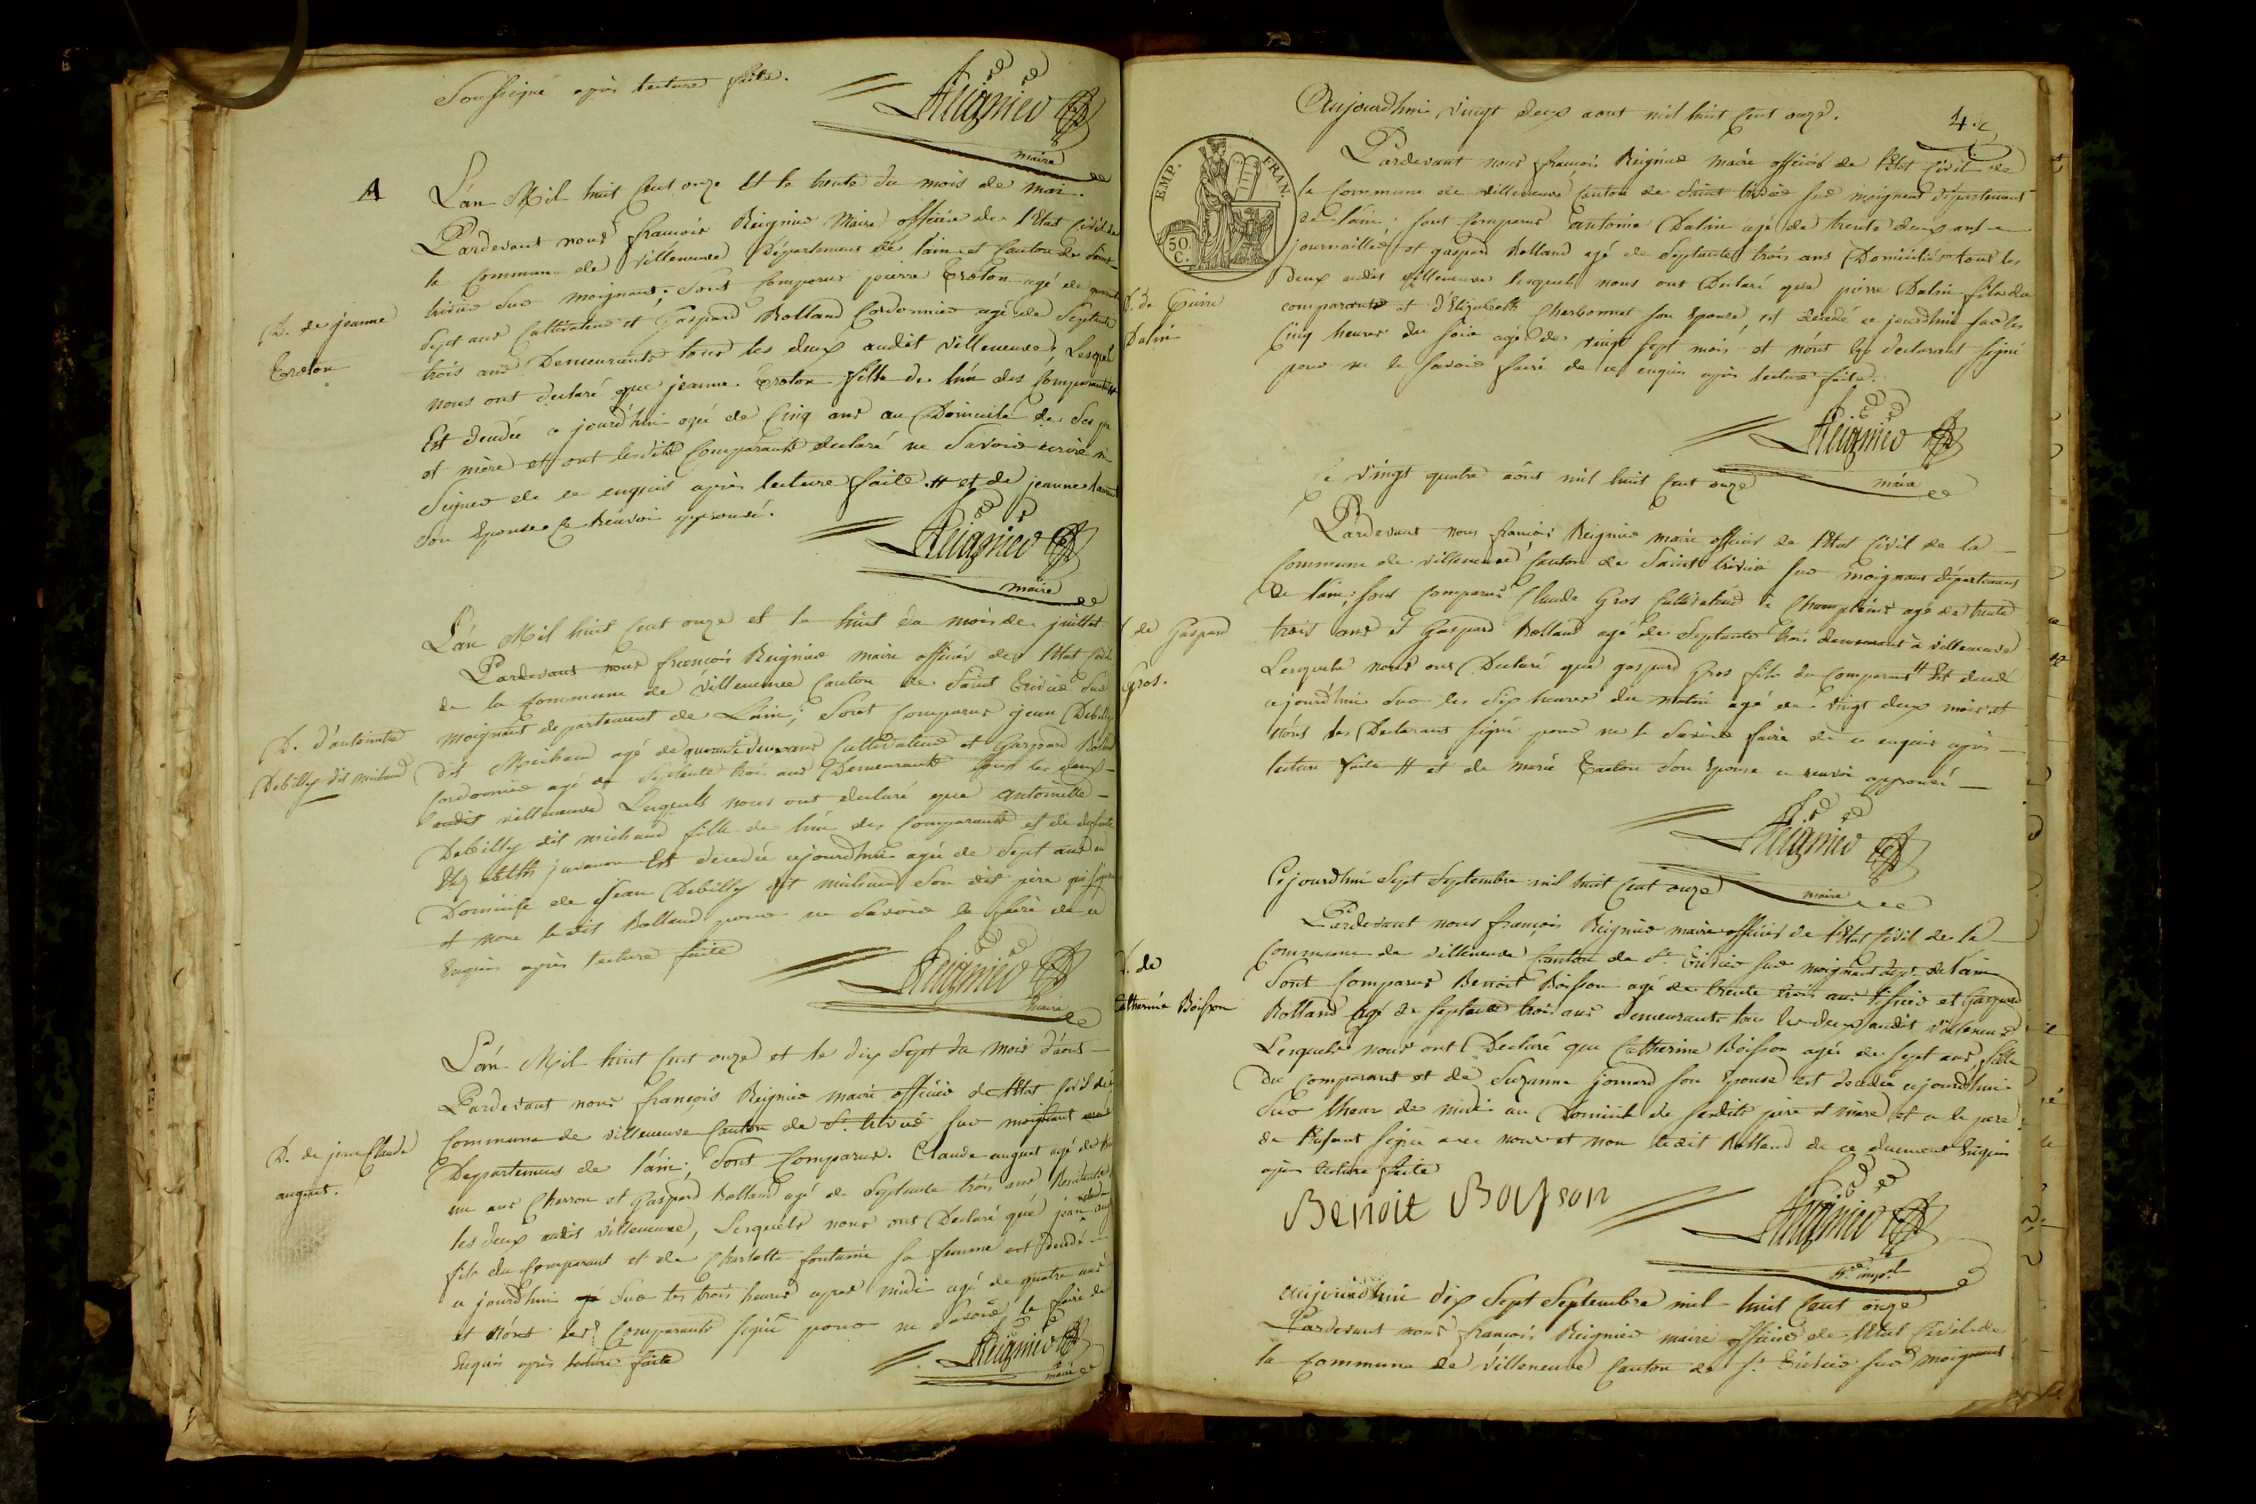 Soussigné après lecture faite.
Reignier
maire
A
L'an Mil huit Cent onze Et le trente du mois de mai.
Pardevant nous françois Reignier Maire officier de l'Etat Civil de
la Commune de villeneuve Département de l'ain et Canton de Saint
trivier Sur moignans; Sont Comparus pierre Croton agé de
D. de jeanne
Croton
Sept ans Cultivateur et Gaspard Rolland Cordonnier agé de Septante
trois ans Demeurants tous les deux audit villeneuve, Lesquels
nous ont declaré que jeanne Croton fille de l'un des Comparants
Est decedée ce jourd'hui agée de Cinq ans au Domicile de Ses père
et mère et ont lesdits Comparants declaré ne Savoir écrire ni
Signer de ce enquis après lecture faite. # et de jeanne
Son Epouse Ce Renvoi approuvé.
Reignier
maire
L'an Mil huit Cent onze et le huit du mois de juillet
Pardevant nous françois Reignier maire officier de l'Etat Civil
de la Commune de villeneuve Canton de Saint Trivier Sur
moignans departement de L'ain; Sont Comparus jean Debilly
D. d'antoinette
Debilly dit michaud
dit Michaud agé de quarante deux ans Cultivateur et Gaspard Rolland
Cordonnier agé de Septante trois ans Demeurants tous les deux
audit villeneuve Lesquels nous ont declaré que antoinette
Debilly dit michaud fille de l'un des Comparants et de defunte
Elizabeth est decedée cejourdhui agée de Sept ans au
Domicile de Jean Debilly dit michaud Son dit père qui
et non le dit Rolland pour ne Savoir le faire de ce
Enquis après lecture faite
Reignier
maire
L'an Mil huit Cent onze et le dix Sept du mois d'aout
Pardevant nous françois Reignier maire officier de l'Etat Civil de la
Commune de villeneuve Canton de St. trivier Sur moignans
D. de jean Claude
auguet.
Departement de l'ain; Sont Comparus Claude auguet agé de
un ans Charron et Gaspard Rolland agé de Septante trois ans Residants
les deux audit villeneuve, Lesquels nous ont Declaré que jean claude
fils du Comparant et de Charlotte fontaine Sa femme est decedé
ce jourdhui Sur les trois heures après midi agé de quatre ans
et n'ont les Comparants Signé pour ne Savoir le faire de
Enquis après lecture faite
Reignier
maire
4.
Aujourdhui vingt deux aout mil huit Cent onze.
EMP. FRAN.
50 C.
Pardevant nous françois Reignier maire officier de l'Etat Civil de
la Commune de villeneuve Canton de Saint trivier Sur moignans département
de l'ain; Sont Comparus antoine Dalin agé de trente deux ans
journaillier et gaspard Rolland agé de Septante trois ans Domiciliés tous les
D. de Pierre
Dalin
deux audit villeneuve lesquels nous ont Declaré que pierre Dalin fils du
comparant et d'Elizabeth Charbonnet Son Epouse, est decedé ce jourdhui Sur les
Cinq heures du Soir agé de vingt Sept mois et n'ont les declarants Signé
pour ne le Savoir faire de ce enquis après lecture faite.
Reignier
maire
Le vingt quatre aôut mil huit Cent onze
Pardevant nous françois Reignier maire officier de l'Etat Civil de la
Commune de villeneuve Canton de Saint trivier Sur moignans département
de l'ain; Sont Comparus Claude Gros Cultivateur à agé de trente
D. de Gaspard
Gros.
trois ans et Gaspard Rolland agé de Septante trois demeurant à villeneuve
Lesquels nous ont Declaré que gaspard Gros fils du Comparant # Est decedé
cejourdhui Sur les Six heures du matin agé de vingt deux mois et
n'ont les Declarants Signé pour ne le Savoir faire de ce enquis après
lecture faite # et de marie Son Epouse ce renvoi approuvé
Reignier
maire
Cejourdhui Sept Septembre mil huit Cent onze
Pardevant nous françois Reignier maire officier de l'Etat Civil de la
Commune de villeneuve Canton de St. Trivier Sur moignans dept. de l'ain
D. de
Catherine Boisson
Sont Comparus Benoit Boisson agé de trente trois ans et Gaspard
Rolland agé de Septante trois ans demeurants tous les deux audit villeneuve
Lesquels nous ont Declaré que Catherine Boisson agée de Sept ans fille
du Comparant et de Suzanne Son Epouse est decedée cejourdhui
Sur lheur de midi au Domicile de Sesdits père et mère et a le pere
de l'Enfant Signé avec nous et non ledit Rolland de ce duement Enquis
après lecture faite
Benoit Boisson
Reignier
aujourdhui dix Sept Septembre mil huit Cent onze
Pardevant nous françois Reignier maire officier de l'Etat Civil de
la Commune de villeneuve Canton de St. Trivier Sur moignans